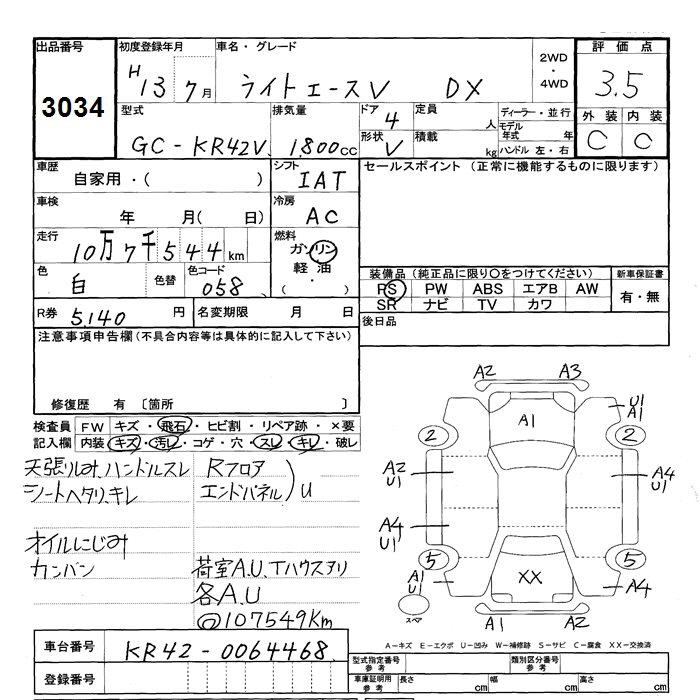 出品番号 初度登録年月 車名・グレード 2WD・4WD 評価点
3034 H13 7月 ライトエースV DX 3.5
型式 排気量 ドア 4 定員 人 ディーラー・並行 外装 内装
GC-KR42V 1800cc 形状 V 積載 kg モデル年式 年 ハンドル 左・右 C C
車歴 自家用・( ) シフト IAT セールスポイント (正常に機能するものに限ります)
車検 年 月( 日) 冷房 AC
走行 10万7千544km 燃料 ガソリン 軽油 ( ・ )
色 白 色替 色コード 058 装備品 (純正品に限り○をつけてください) 新車保証書
PS PW ABS エアB AW 有・無
SR ナビ TV カワ
R券 5,140円 名変期限 月 日 後日品
注意事項申告欄 (不具合内容等は具体的に記入して下さい)
修復歴 有 〔箇所 〕
検査員 FW キズ・飛石・ヒビ割・リペア跡・×要
記入欄 内装 キズ・汚レ・コゲ・穴・スレ・キレ・破レ
天張りしみ、ハンドルスレ Rフロア
シートヘタリ、キレ エンドパネル)U
オイルにじみ
カンバン 荷室A.U、Tハウスアリ
各A.U
@107549Km
A2 A3
A1
U1
A1
2 2
A2
U1
A4
U1
A4
U1
5 5
XX
A1
U
スペア
A4
A1 A2
A-キズ E-エクボ U-凹み W-補修跡 S-サビ C-腐食 XX-交換済
車台番号 KR42-0064468
登録番号
型式指定番号 参考 類別区分番号 参考
車庫証明用 参考 長さ cm 幅 cm 高さ cm